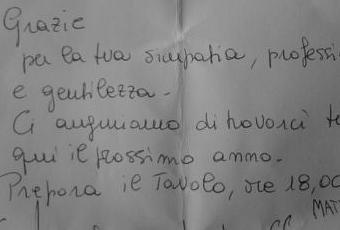 Grazie
per la tua simpatia, professi
e gentilezza.
Ci auguriamo di trovarci
qui il prossimo anno.
Prepara il Tavolo, ore 18,00
MAT